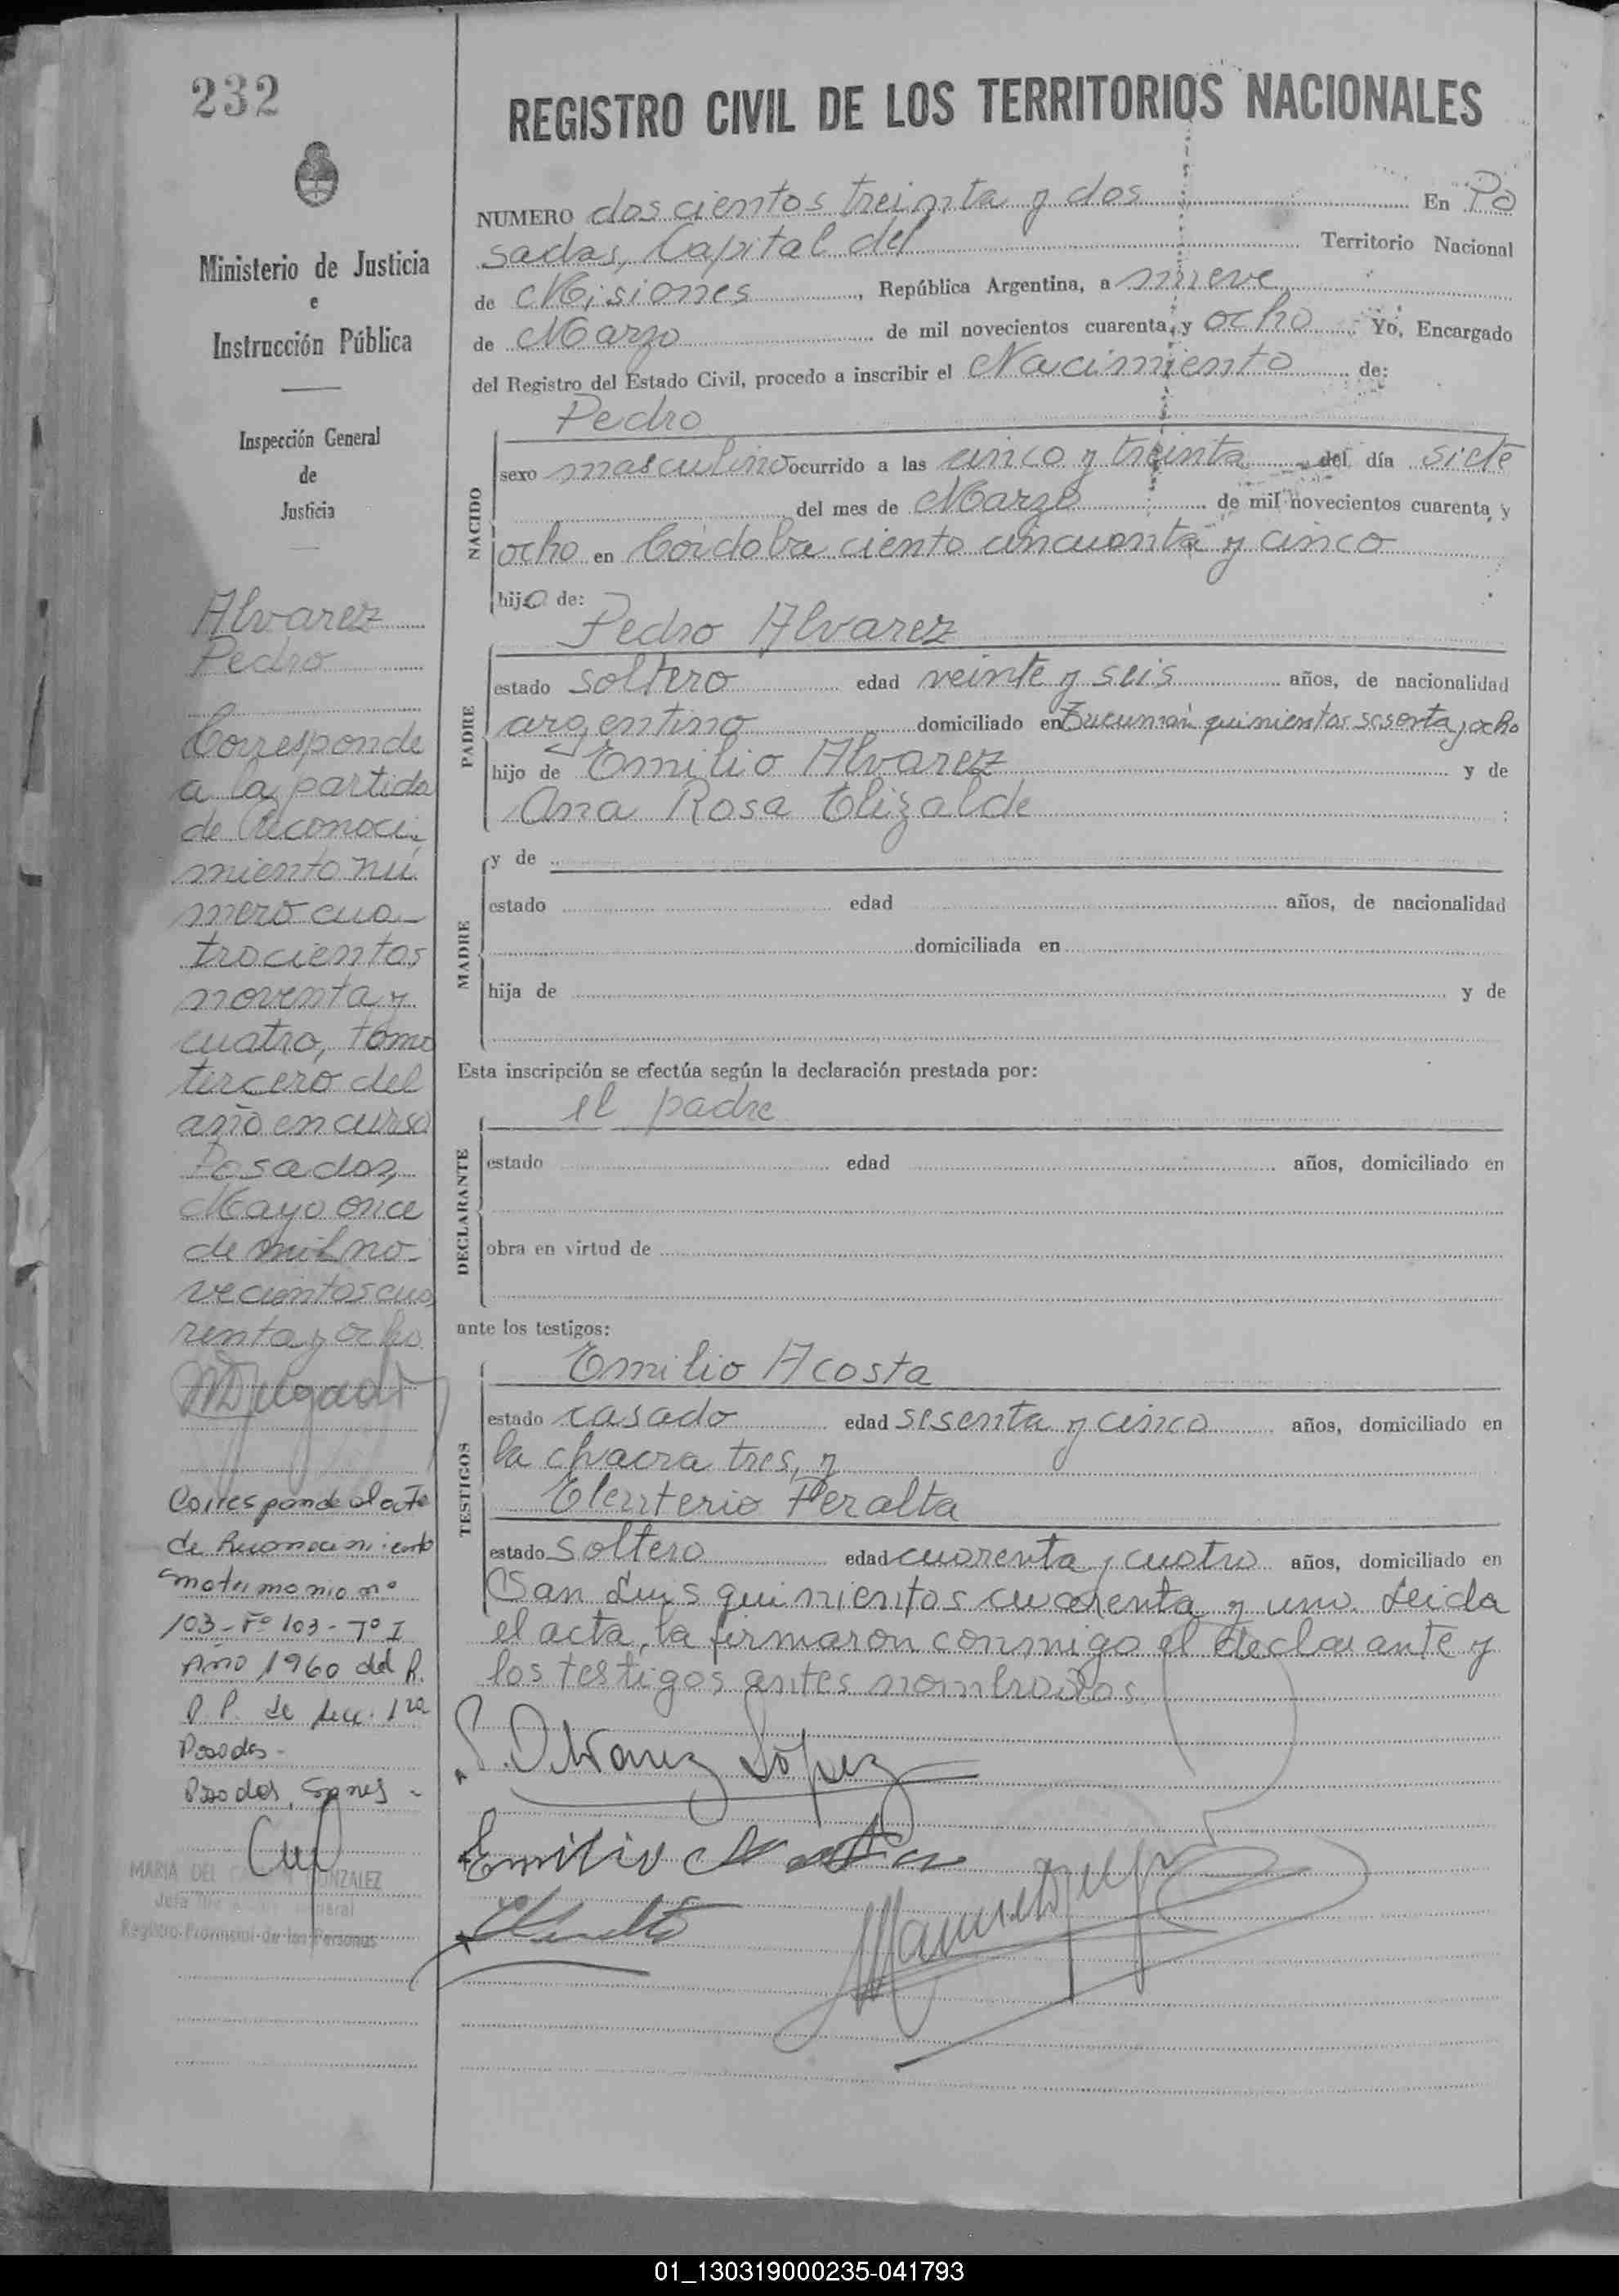 232
Ministerio de Justicia
e
Instrucción Pública
Inspección General
de
Justicia
Alvarez
Pedro
Corresponde
a la partida
de Reconoci-
miento nú
mero cua-
trocientos
noventa y
cuatro, tomo
tercero del
año en curso
Posadas,
Mayo once
de mil no-
vecientos cua
renta y ocho
Corresponde al acta
de Reconocimiento
matrimonio nº
103-Fº 103-Tº I
Año 1960 del R.
P. P. de Secc. 1ra
Posadas-
Posadas,
MARIA DEL GONZALEZ
Jefa
Registro Provincial de las Personas
REGISTRO CIVIL DE LOS TERRITORIOS NACIONALES
NUMERO doscientos treinta y dos En Po
sadas, Capital del Territorio Nacional
de Misiones, República Argentina, a nueve
de Marzo de mil novecientos cuarenta y ocho Yo, Encargado
del Registro del Estado Civil, procedo a inscribir el Nacimiento de:
NACIDO
Pedro
sexo masculino ocurrido a las cinco y treinta del día siete
del mes de Marzo de mil novecientos cuarenta y
ocho en Córdoba ciento cincuenta y cinco
hijo de:
PADRE
Pedro Alvarez
estado soltero edad veinte y seis años, de nacionalidad
argentino domiciliado en Tucumán quinientos sesenta y ocho
hijo de Emilio Alvarez y de
Ana Rosa Elizalde ;
MADRE
y de
estado edad años, de nacionalidad
domiciliada en
hija de y de
Esta inscripción se efectúa según la declaración prestada por:
DECLARANTE
el padre
estado edad años, domiciliado en
obra en virtud de
ante los testigos:
TESTIGOS
Emilio Acosta
estado casado edad sesenta y cinco años, domiciliado en
la chacra tres, y
Eleuterio Peralta
estado soltero edad cuarenta y cuatro años, domiciliado en
San Luis quinientos cuarenta y uno. Leida
el acta, la firmaron conmigo el declarante y
los testigos antes nombrados.
P. Alvarez López
Emilio Acosta
01_130319000235-041793